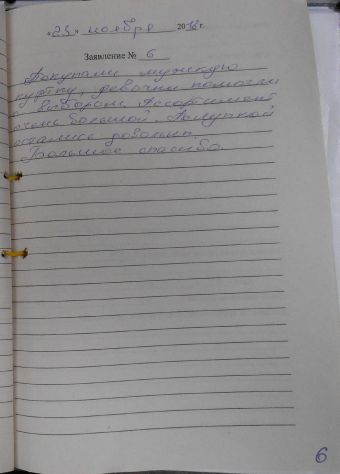 «23» ноября 2018 г.
Заявление № 6
Покупали мужскую
куртку, девочки помогли
с выбором. Ассортимент
очень большой. Покупкой
остались довольны.
Большое спасибо.
6